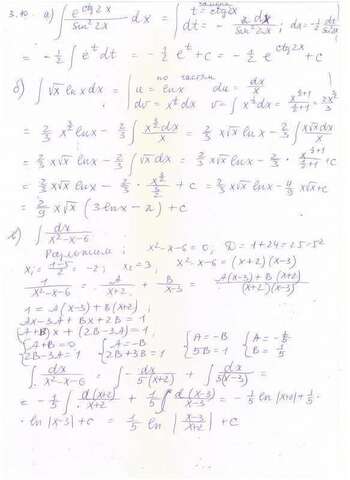 3.10. а) ∫ e^{ctg2x} / sin²2x dx = | замена t = ctg2x dt = - 2dx / sin²2x ;
= -1/2 ∫ e^t dt = -1/2 e^t + c = -1/2 e^{ctg2x} + c
б) ∫ √x lnx dx = | по частям u = lnx du = dx/x dv = x^{1/2} dx v = ∫ x^{1/2} dx = x^{1/2+1} / (1/2+1) = 2x^{3/2} / 3
= 2/3 x^{3/2} lnx - 2/3 ∫ x^{3/2} dx / x = 2/3 x√x lnx - 2/3 ∫ x√x dx / x
= 2/3 x√x lnx - 2/3 ∫ √x dx = 2/3 x√x lnx - 2/3 · x^{1/2+1} / (1/2+1) + c
= 2/3 x√x lnx - 2/3 · x^{3/2} / (3/2) + c = 2/3 x√x lnx - 4/9 x√x + c
= 2/9 x√x (3lnx - 2) + c
в) ∫ dx / (x²-x-6)
Разложим : x²-x-6 = 0, D = 1+24 = 25 = 5²
x₁ = (1-5)/2 = -2; x₂ = 3, x²-x-6 = (x+2)(x-3)
1/(x²-x-6) = A/(x+2) + B/(x-3) = (A(x-3) + B(x+2)) / ((x+2)(x-3))
1 = A(x-3) + B(x+2);
Ax-3A + Bx + 2B = 1
(A+B)x + (2B-3A) = 1,
{ A+B = 0 2B-3A = 1 { A = -B 2B+3B = 1 { A = -B 5B = 1 { A = -1/5 B = 1/5
∫ dx / (x²-x-6) = ∫ - dx / 5(x+2) + ∫ dx / 5(x-3) =
= -1/5 ∫ d(x+2) / (x+2) + 1/5 ∫ d(x-3) / (x-3) = -1/5 ln|x+2| + 1/5 ·
· ln|x-3| + c = 1/5 ln |(x-3)/(x+2)| + c